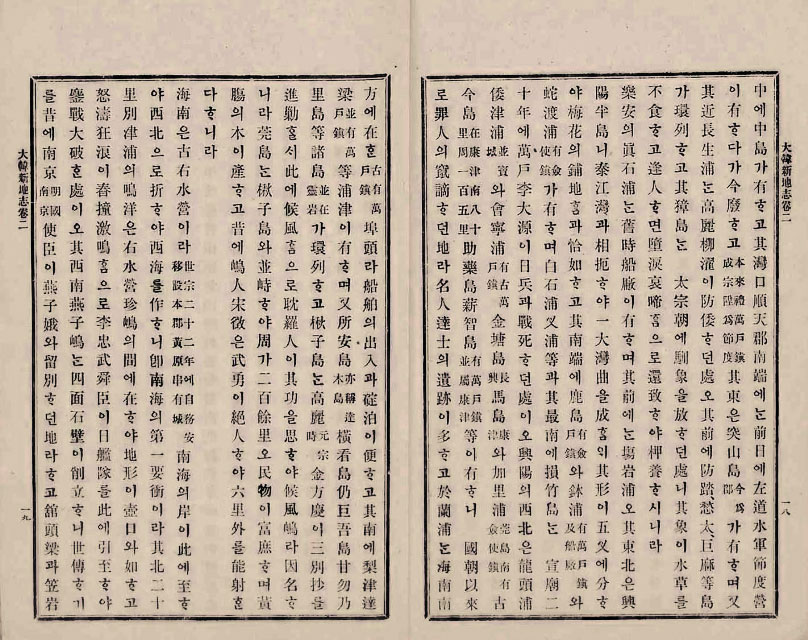 大韓新地志卷二
一八
中에中島가有ᄒᆞ고其灣口順天郡南端에ᄂᆞᆫ前日에左道水軍節度營
이有ᄒᆞ다가今廢ᄒᆞ고本來禮萬戶鎭成宗陞爲節度其東은突山島今爲郡가有ᄒᆞ며又
其近長生浦ᄂᆞᆫ高麗柳濯이防倭ᄒᆞ던處오其前에防踏、愁太、巨麻等島
가環列ᄒᆞ고其獐島ᄂᆞᆫ 太宗朝에馴象을放ᄒᆞ던處니其象이水草를
不食ᄒᆞ고逢人ᄒᆞ면墮淚哀啼홈으로還致ᄒᆞ야枰養ᄒᆞ시니라
樂安의眞石浦ᄂᆞᆫ舊時船廠이有ᄒᆞ며其前에ᄂᆞᆫ塲岩浦오其東北은興
陽半島니泰江灣과相扼ᄒᆞ야一大灣曲을成홈ᄋᆡ其形이五叉에分ᄒᆞ
야梅花의鋪地홈과恰如ᄒᆞ고其南端에鹿島有金戶鎭와鉢浦有萬戶鎭及船廠와
蛇渡浦有金使鎭가有ᄒᆞ며白石浦叉浦等과其最南에損竹島ᄂᆞᆫ 宣廟二
十年에萬戶李大源이日兵과戰死ᄒᆞ던處이오興陽의西北은龍頭浦
倭津浦並寶城와會寧浦有古萬戶鎭金塘島長興馬島康津와加里浦莞島南有古僉使鎭古
今島在康津南八十里周一百五里助藥島薪智島有萬戶鎭並屬康津等이有ᄒᆞ니 國朝以來
로罪人의竄謫ᄒᆞ던地라名人達士의遺跡이多ᄒᆞ고於蘭浦ᄂᆞᆫ海南南
方에在ᄒᆞᆫ古有萬戶鎭埠頭라船舶의出入과碇泊이便ᄒᆞ고其南에梨津達
梁並有萬戶鎭等浦津이有ᄒᆞ며又所安島亦稱達木島橫看島仍巨吾島甘勿乃
里島等諸島並在靈岩가環列ᄒᆞ고楸子島ᄂᆞᆫ高麗元宗時金方慶이三別抄를
進勦ᄒᆞᆯᄉᆡ此에候風홈으로耽羅人이其功을思ᄒᆞ야候風嶋라因名ᄒᆞ
니라莞島ᄂᆞᆫ楸子島와並峙ᄒᆞ야周가二百餘里오民物이富庶ᄒᆞ며黃
膓의木이產ᄒᆞ고昔에嶋人宋徵은武勇이絕人ᄒᆞ야六里外를能射ᄒᆞᆫ
다ᄒᆞ니라
海南은古右水營이라世宗二十二年에自務安移設本郡黃原串有城南海의岸이此에至ᄒᆞ
야西北으로折ᄒᆞ야西海를作ᄒᆞ니卽南海의第一要衝이라其北二十
里別津浦의鳴洋은右水營珍嶋의間에在ᄒᆞ야地形이壺口와如ᄒᆞ고
怒濤狂浪이舂撞激鳴홈으로李忠武舜臣이日艦隊를此에引至ᄒᆞ야
鏖戰大破ᄒᆞᆫ處이오其西南燕子嶋ᄂᆞᆫ四面石壁이削立ᄒᆞ니世傳ᄒᆞ기
를昔에南京明國南京使臣이燕子娥와留別ᄒᆞ던地라ᄒᆞ고館頭梁과笠岩
大韓新地志卷二
一九